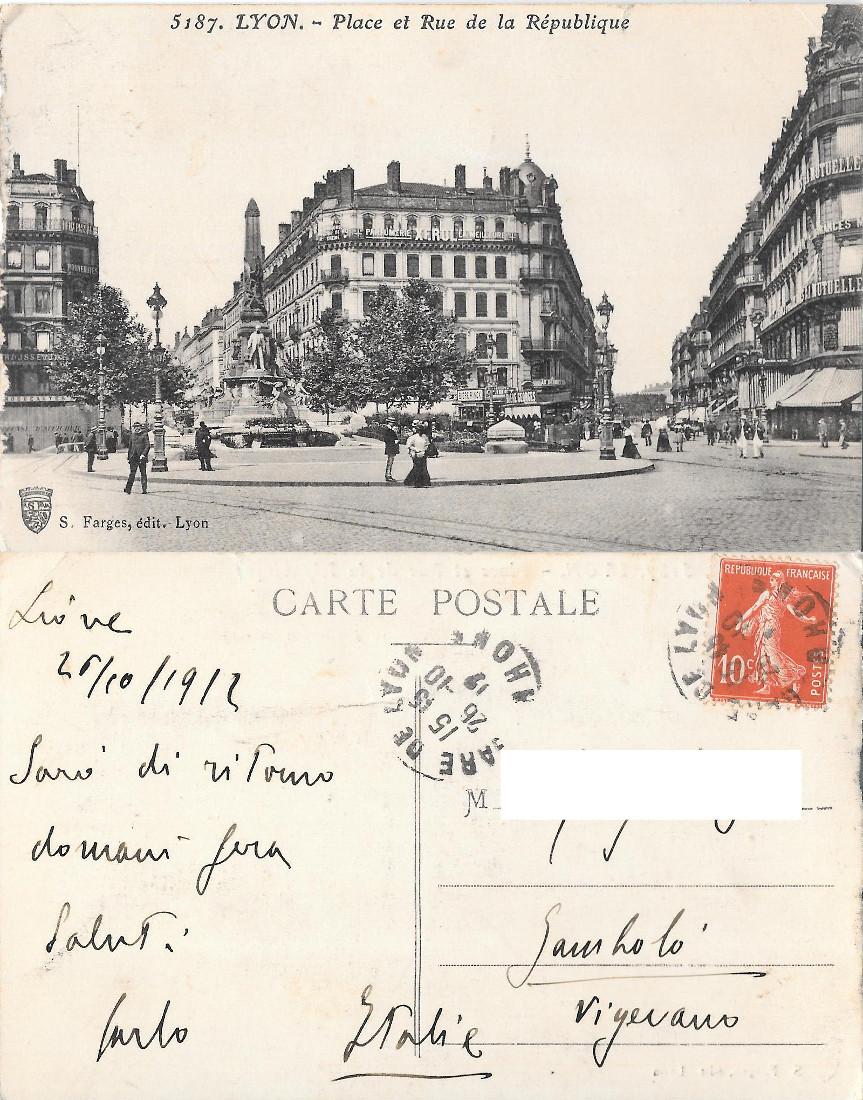 5187. LYON. - Place et Rue de la République
PARFUMERIE XEROL LA MEILLEURE
MUTUELLE
MUTUELLE
S. Farges, édit. Lyon
CARTE POSTALE
RÉPUBLIQUE FRANÇAISE
10c
POSTES
GARE DE LYON RHONE
15 15
26 10
Lióne
26/10/1912
Sarò di ritorno
domani sera
Saluti
Carlo
M
Gambolò
Vigevano
Italie